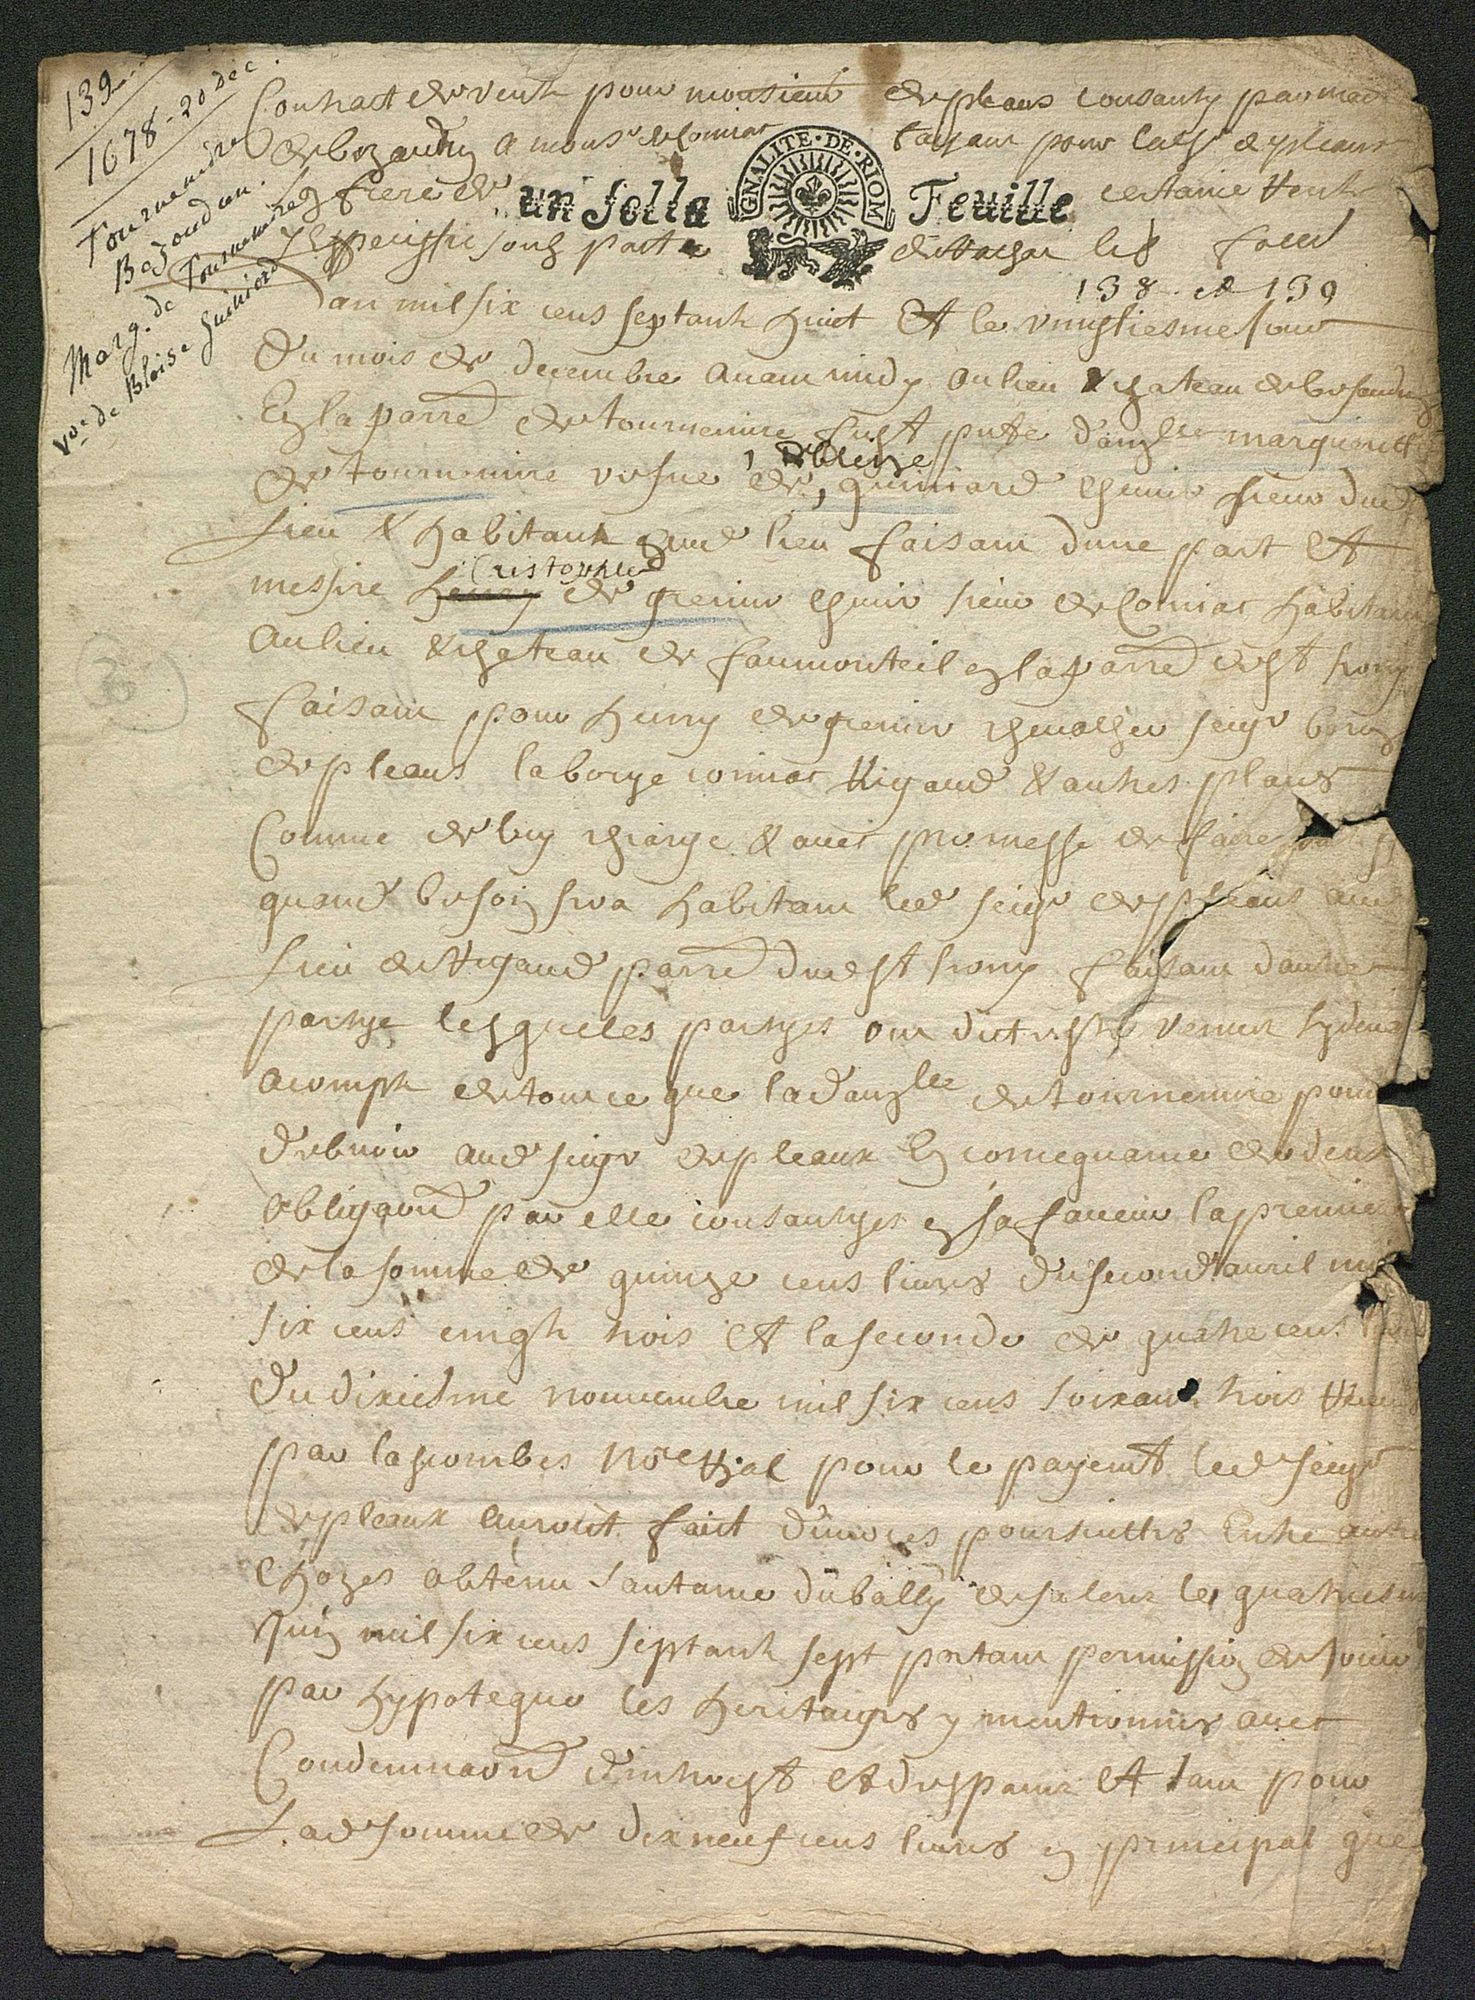 139
1678 - 20 déc.
Tournemire
Besoudun.
Marg. de Tournemire
vve de Blaise Guiniard
Contract de vente pour monsieur de pleaus consanty par mad
de bezaudin a mons de Comiac faisant pour led sr de pleaux
son frere de certaine vente
GNALITE · DE · RIOM
un solla Feuille
138 et 139
L'an mil six cens septante huict Et le vingtiesme jour
Du mois de decembre avant midy au lieu & chateau de besaudun
En la parre de tournemire fust pnte dauzlle margueritte
de tournemire vefve de bleize
de guiniard escuier sieur dud
Lieu & habitante aud lieu faisant dune part Et
Cristophle
messire henry de grenier escuier sieur de Comiac habitant
Au lieu & chateau de faumonteil en la parre de st
faisant pour henry de grenier chevalier seigr baron
de pleaus laborye comiac Rigaud & autres places
Comme de luy charge & avec promesse de faire
quand besoin sera habitant led seigr de pleaus aud
Lieu de Rigaud parre dud st faisant dautre
partye lesqueles partyes ont dict estre venus
a compte de tout ce que la dauzlle de tournemire pour
debvoir aud seigr de pleaux En concequance de deux
obligaons par elle consantyes en sa faveur la premiere
de la somme de quinze cens livres du second avril mil
six cens cinqte trois Et la seconde de quatre cens
Du dixiesme novembre mil six cens soixante trois Receus
par lascombes nore Royal pour le payemt led seigr
de pleaux auroict faict diverces poursuittes Entre autres
chozes obtenu santance du bally de salers le quatriesme
Juin mil six cens septante sept portant permission de jouir
par hypoteque les heritaiges y mentionnes avec
Condemnaon dintherest et despans Et tant pour
Lad somme de dix neuf cens livres en principal que